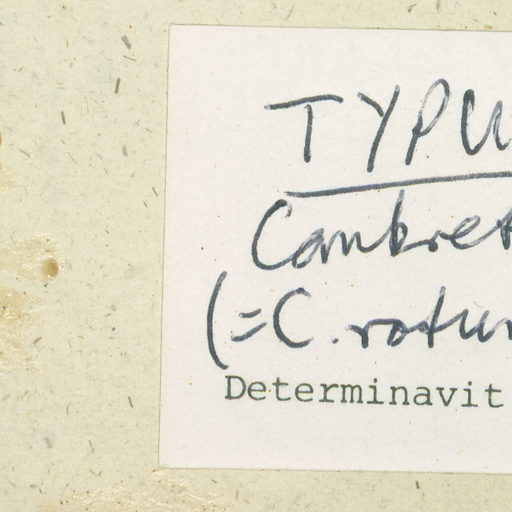 TYPU
Combret
(= C. rotun
Determinavit